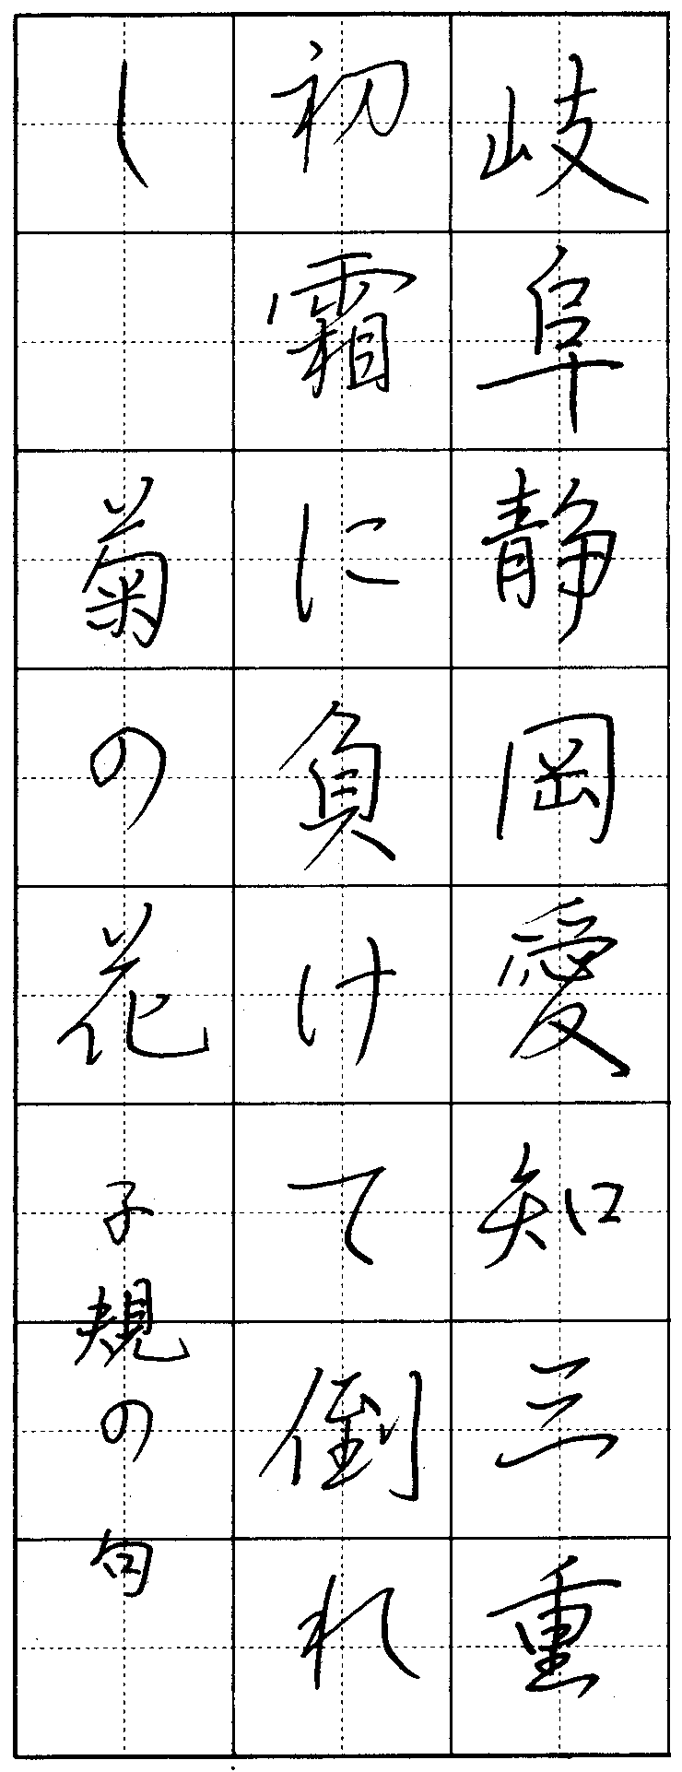 岐阜静岡愛知三重
初霜に負けて倒れ
し　菊の花　子規の句